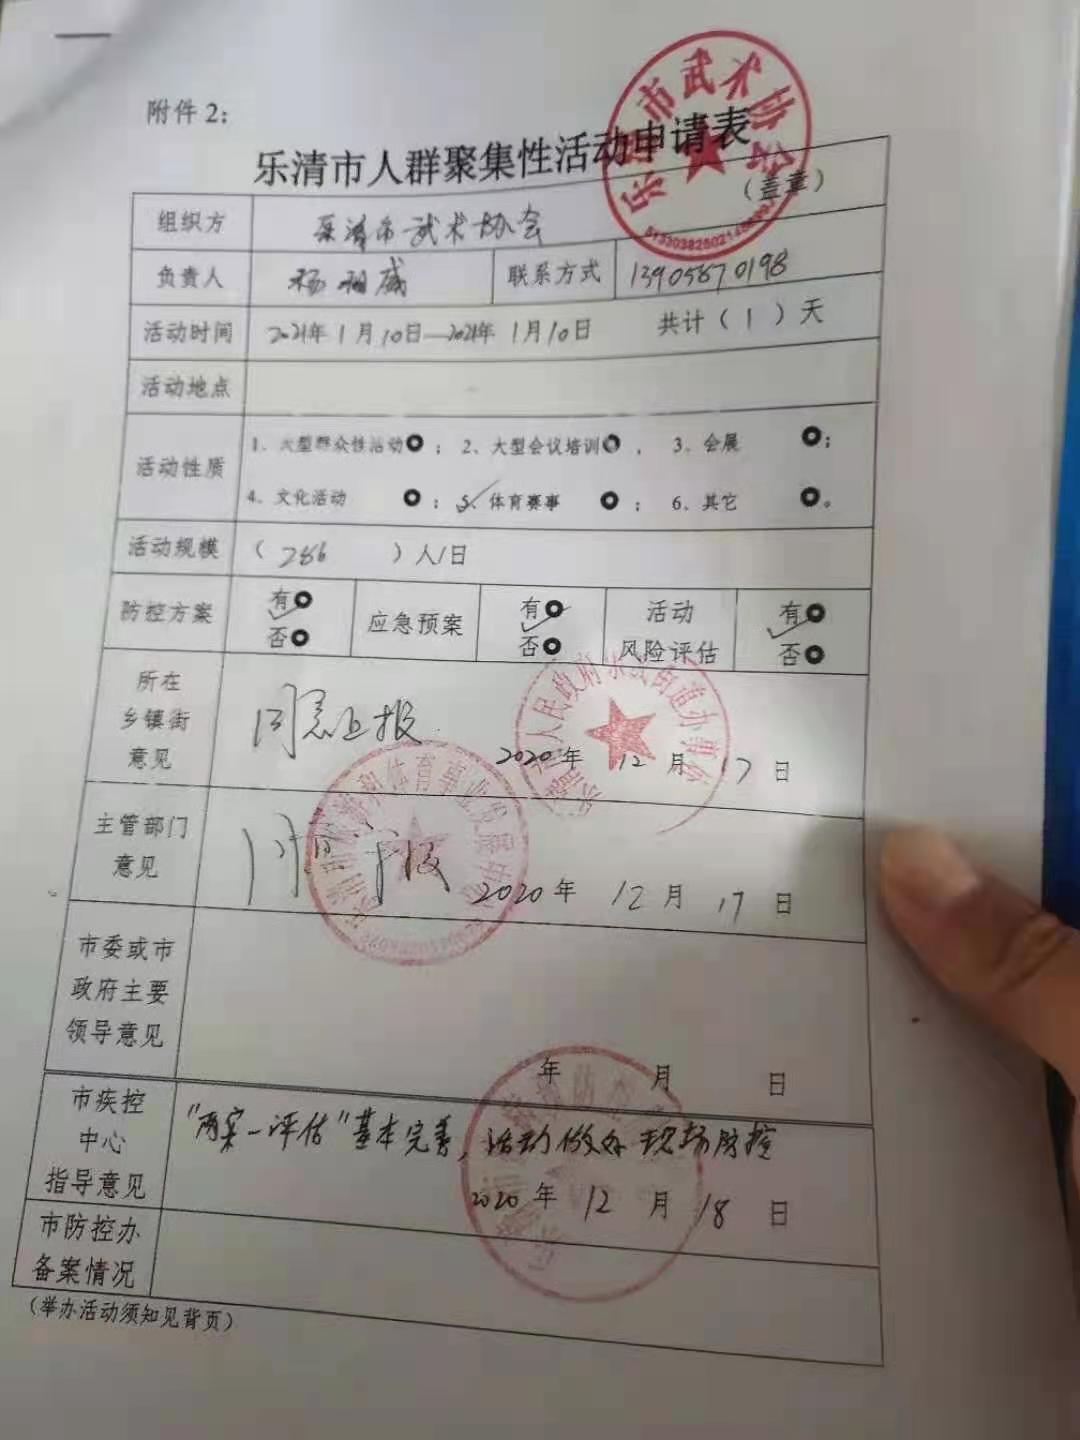 附件2：
乐清市人群聚集性活动申请表
（盖章）
组织方 乐清市武术协会
负责人 杨相威 联系方式 13905870198
活动时间 2021年1月10日—2021年1月10日 共计（1）天
活动地点
活动性质
1、大型群众性活动 ； 2、大型会议培训 ， 3、会展 ；
4、文化活动 ； 5、体育赛事 ； 6、其它 。
活动规模 （286 ）人/日
防控方案 有 否 应急预案 有 否 活动风险评估 有 否
所在乡镇街意见
同意上报
2020年12月17日
主管部门意见
2020年12月17日
市委或市政府主要领导意见
年 月 日
市疾控中心指导意见
"两案一评估"基本完善，活动做好现场防控
2020年12月18日
市防控办备案情况
（举办活动须知见背页）